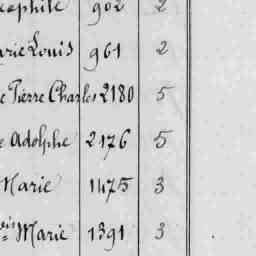 902 2
Louis 961 2
Pierre Charles 2180 5
Adolphe 2176 5
Marie 1475 3
Marie 1391 3